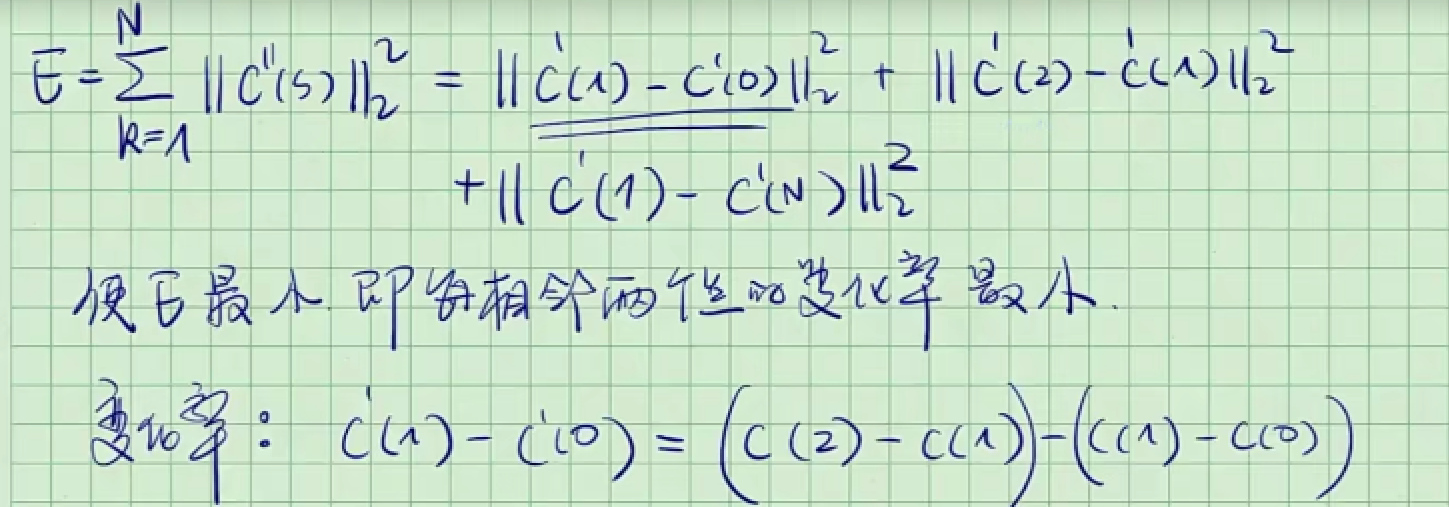 E = \sum_{k=1}^{N} ||C''(s)||_2^2 = ||C'(1) - C'(0)||_2^2 + ||C'(2) - C'(1)||_2^2
+ ||C'(1) - C'(N)||_2^2
使E最小. 即每相邻两个点的变化率最小.
变化率: C'(1) - C'(0) = (C(2) - C(1)) - (C(1) - C(0))